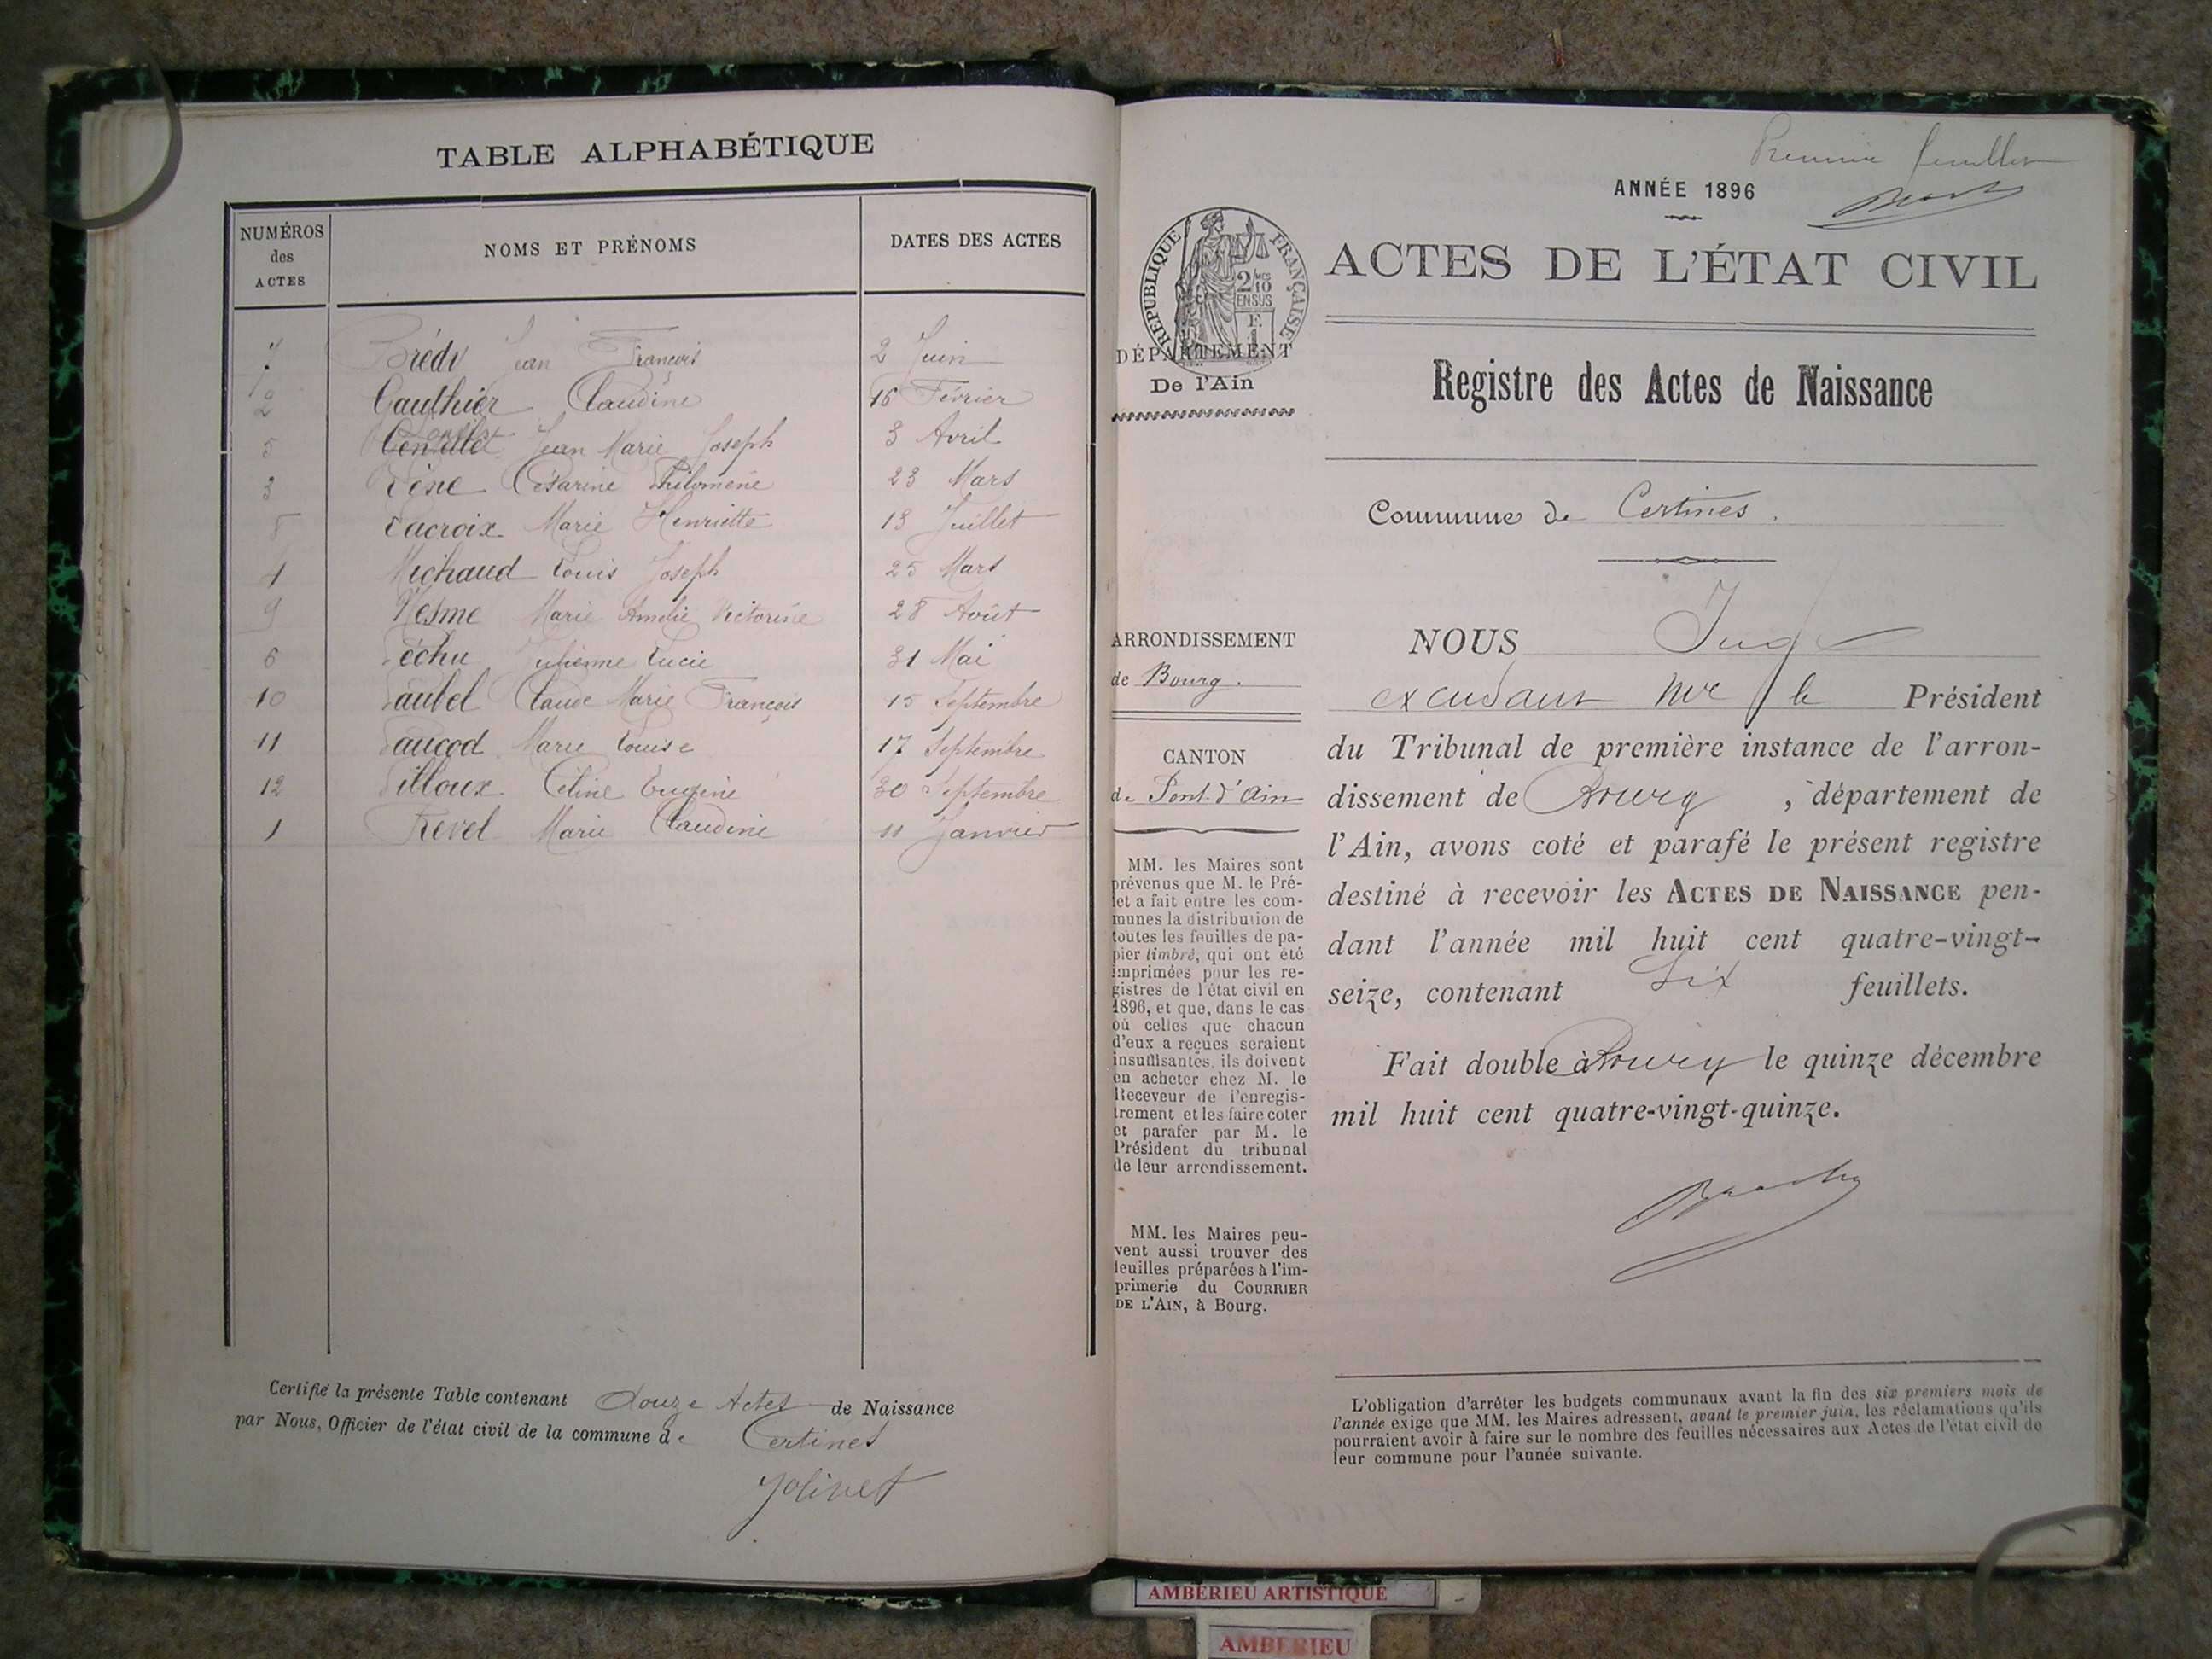 TABLE ALPHABÉTIQUE
NUMÉROS
des
ACTES
NOMS ET PRÉNOMS
DATES DES ACTES
7 Brédy Jean François 2 Juin
2 Gauthier Claudine 16 Février
5 Jean Marie Joseph 3 Avril
3 Césarine Philomène 23 Mars
8 Lacroix Marie Henriette 13 Juillet
4 Michaud Louis Joseph 25 Mars
9 Nesme Marie Amélie Victorine 28 Août
6 Péchu Julienne Lucie 31 Mai
10 Paubel Claude Marie François 15 Septembre
11 Paucod Marie Louise 17 Septembre
12 Pilloux Céline Eugénie 30 Septembre
1 Revel Marie Claudine 11 Janvier
Certifié la présente Table contenant douze Actes de Naissance
par Nous, Officier de l'état civil de la commune de Certines
Jolivet
Premier feuillet
ANNÉE 1896
RÉPUBLIQUE FRANÇAISE
2/10 MES
EN SUS
F.
1
ACTES DE L'ÉTAT CIVIL
DÉPARTEMENT
De l'Ain
Registre des Actes de Naissance
Commune de Certines.
ARRONDISSEMENT
de Bourg.
CANTON
de Pont-d'Ain
MM. les Maires sont
prévenus que M. le Pré-
fet a fait entre les com-
munes la distribution de
toutes les feuilles de pa-
pier timbré, qui ont été
imprimées pour les re-
gistres de l'état civil en
1896, et que, dans le cas
où celles que chacun
d'eux a reçues seraient
insuffisantes, ils doivent
en acheter chez M. le
Receveur de l'enregis-
trement et les faire coter
et parafer par M. le
Président du tribunal
de leur arrondissement.
MM. les Maires peu-
vent aussi trouver des
feuilles préparées à l'im-
primerie du COURRIER
DE L'AIN, à Bourg.
NOUS Juge
Mr le Président
du Tribunal de première instance de l'arron-
dissement de Bourg, département de
l'Ain, avons coté et parafé le présent registre
destiné à recevoir les ACTES DE NAISSANCE pen-
dant l'année mil huit cent quatre-vingt-
seize, contenant Six feuillets.
Fait double à Bourg le quinze décembre
mil huit cent quatre-vingt-quinze.
L'obligation d'arrêter les budgets communaux avant la fin des six premiers mois de
l'année exige que MM. les Maires adressent, avant le premier juin, les réclamations qu'ils
pourraient avoir à faire sur le nombre des feuilles nécessaires aux Actes de l'état civil de
leur commune pour l'année suivante.
AMBÉRIEU ARTISTIQUE
AMBÉRIEU